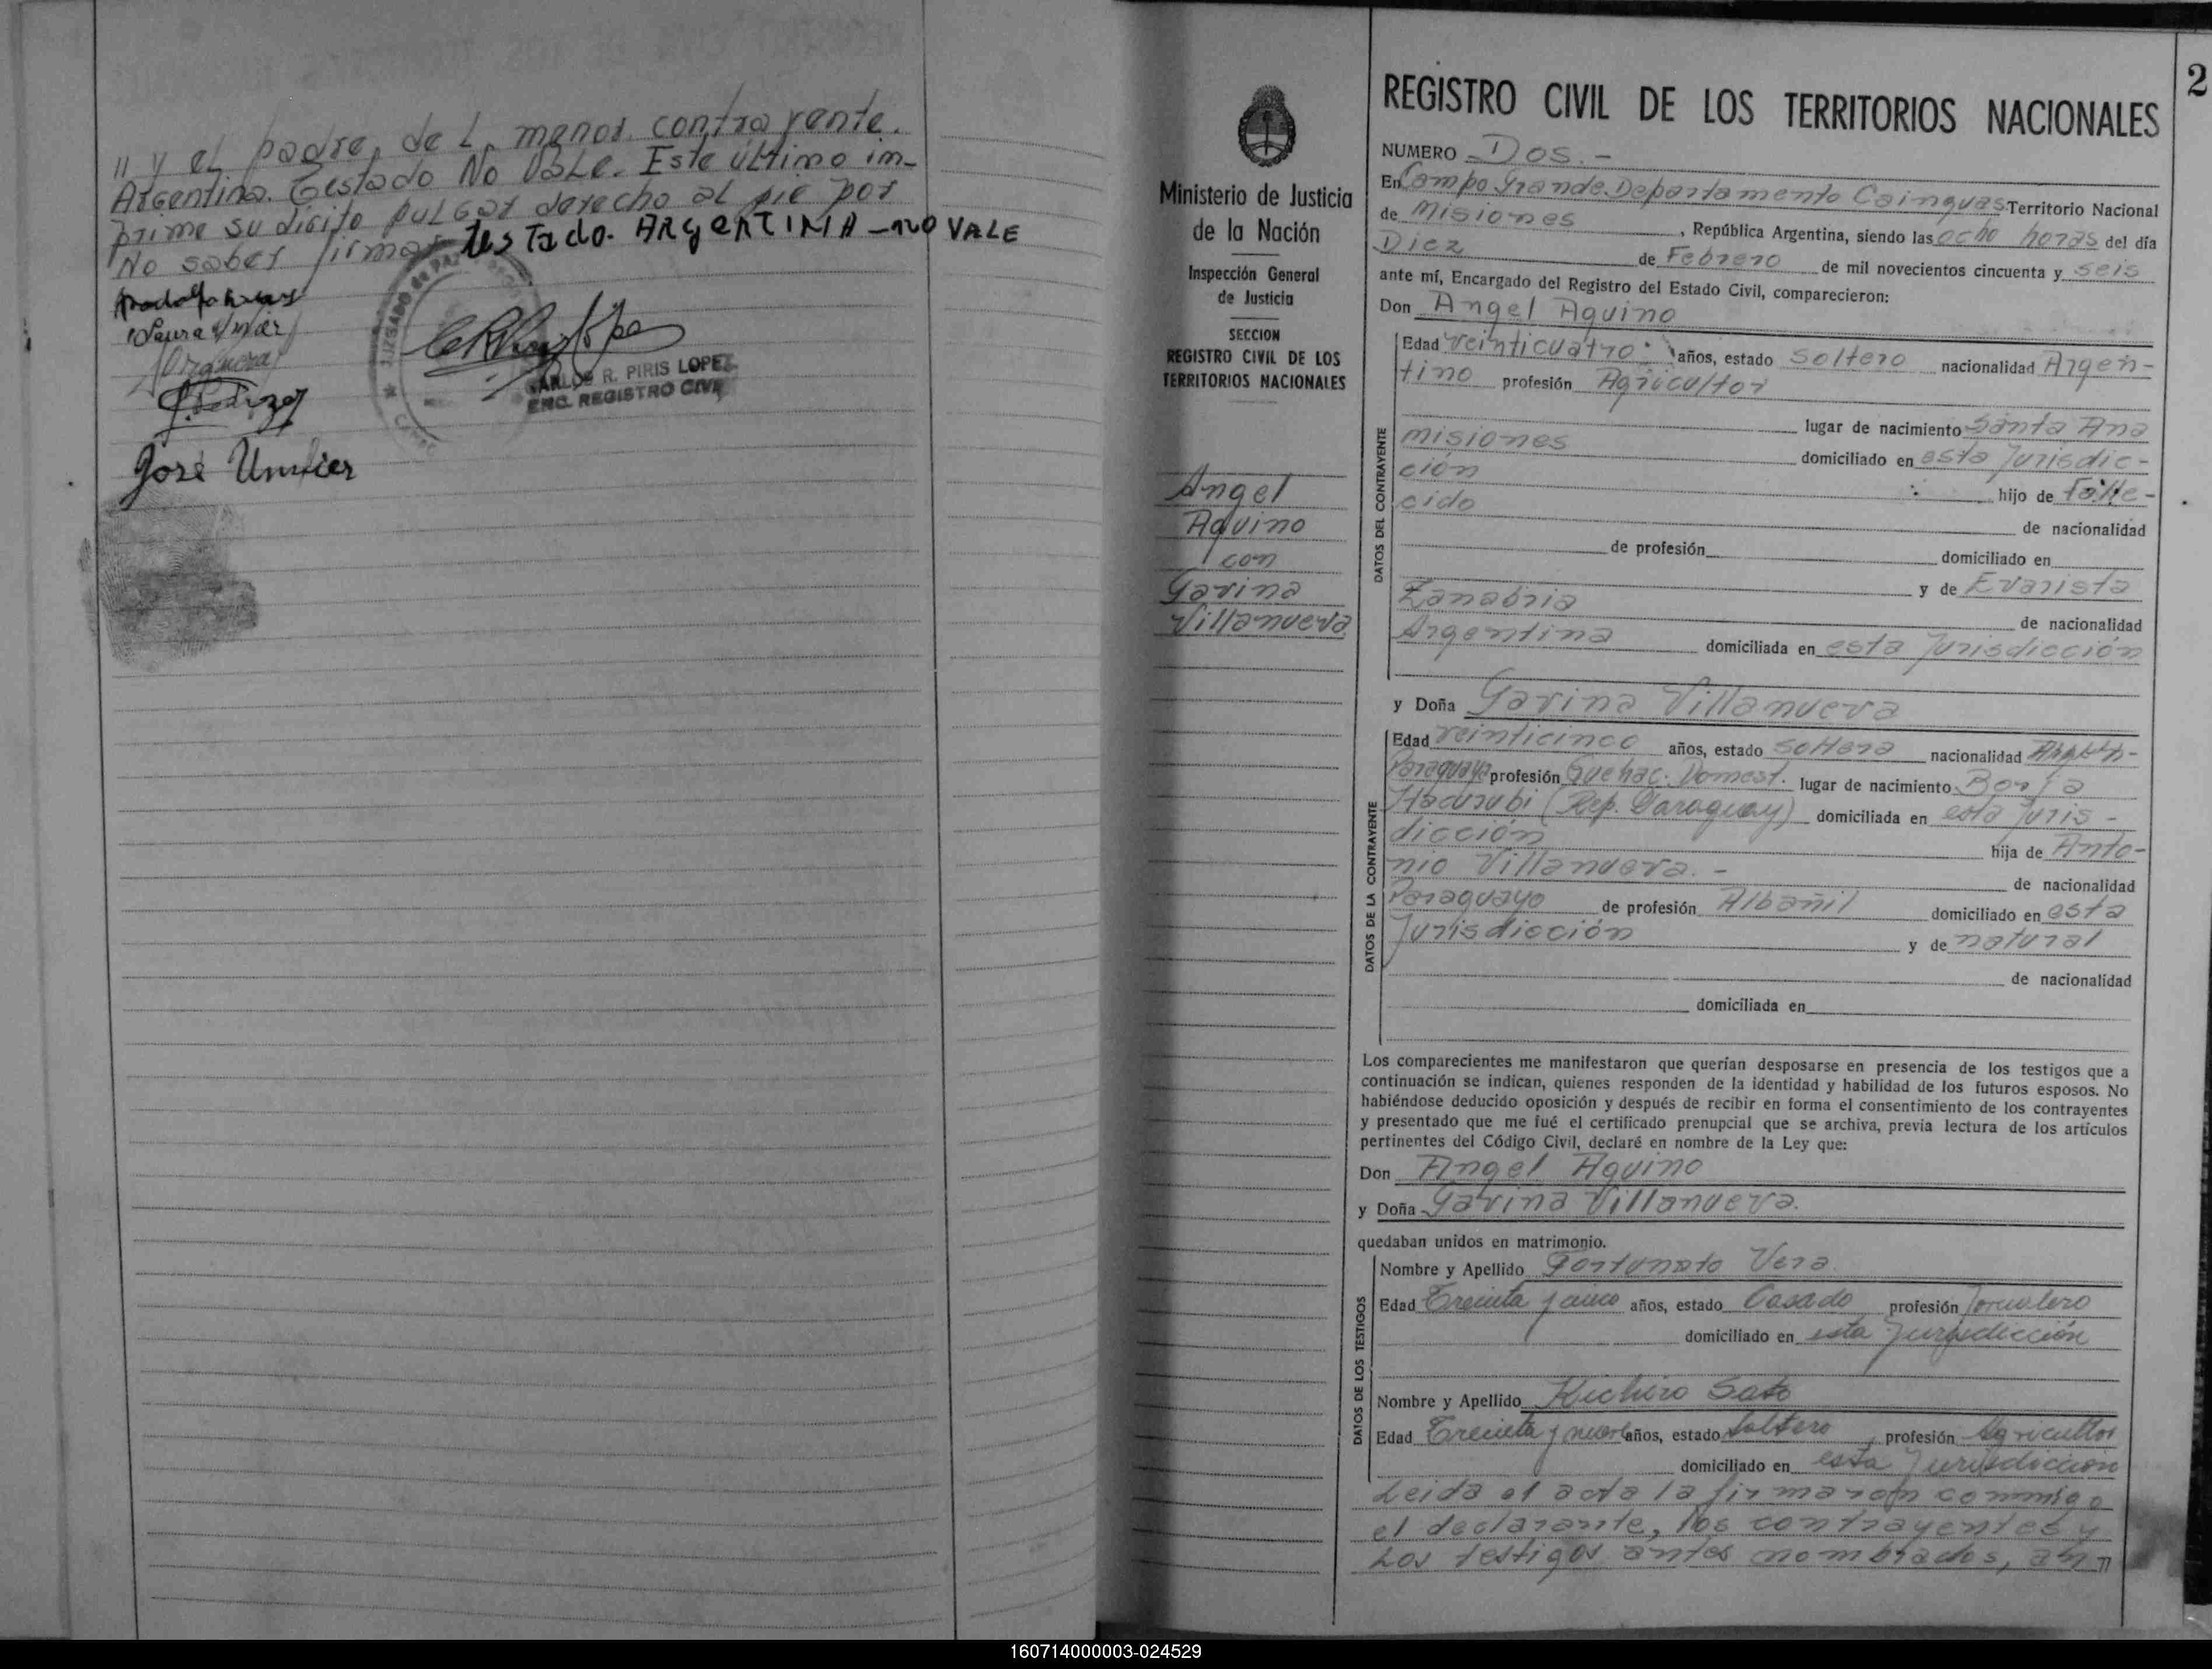 " y el padre de L menor contrayente.
Argentina. Testado No Vale. Este último im-
prime su dígito pulgar derecho al pie por
No saber firmar testado. ARgenTINA - no VALE
JUZGADO de PAZ
José Umfier
CARLOS R. PIRIS LOPEZ
ENC. REGISTRO CIVIL
2
Ministerio de Justicia
de la Nación
Inspección General
de Justicia
SECCION
REGISTRO CIVIL DE LOS
TERRITORIOS NACIONALES
Angel
Aquino
con
Gavina
Villanueva
REGISTRO CIVIL DE LOS TERRITORIOS NACIONALES
NUMERO Dos.-
En Campo Grande. Departamento Cainguas Territorio Nacional
de Misiones, República Argentina, siendo las ocho horas del día
Diez de Febrero de mil novecientos cincuenta y seis
ante mí, Encargado del Registro del Estado Civil, comparecieron:
Don Angel Aquino
DATOS DEL CONTRAYENTE
Edad veinticuatro años, estado soltero nacionalidad Argen-
tino profesión Agricultor
lugar de nacimiento Santa Ana
misiones domiciliado en esta Jurisdic-
ción hijo de Falle-
cido de nacionalidad
de profesión domiciliado en
y de Evarista
Zanabria de nacionalidad
Argentina domiciliada en esta Jurisdicción
y Doña Gavina Villanueva
DATOS DE LA CONTRAYENTE
Edad veinticinco años, estado soltera nacionalidad Argen-
Paraguaya profesión Quehac. Domest. lugar de nacimiento Borja
Itacurubi (Rep. Paraguay) domiciliada en esta Juris-
dicción hija de Anto-
nio Villanueva.- de nacionalidad
Paraguayo de profesión Albañil domiciliado en esta
Jurisdicción y de natural
de nacionalidad
domiciliada en
Los comparecientes me manifestaron que querían desposarse en presencia de los testigos que a
continuación se indican, quienes responden de la identidad y habilidad de los futuros esposos. No
habiéndose deducido oposición y después de recibir en forma el consentimiento de los contrayentes
y presentado que me fué el certificado prenupcial que se archiva, previa lectura de los artículos
pertinentes del Código Civil, declaré en nombre de la Ley que:
Don Angel Aquino
y Doña Gavina Villanueva.
quedaban unidos en matrimonio.
DATOS DE LOS TESTIGOS
Nombre y Apellido Fortunato Vera
Edad Treinta y cinco años, estado Casado profesión Jornalero
domiciliado en esta Jurisdicción
Nombre y Apellido Kichiro Sato
Edad Treinta y nueve años, estado Soltero, profesión Agricultor
domiciliado en esta Jurisdiccion
Leida el acta la firmaron conmigo
el declarante, los contrayentes y
Los testigos antes nombrados,
160714000003-024529